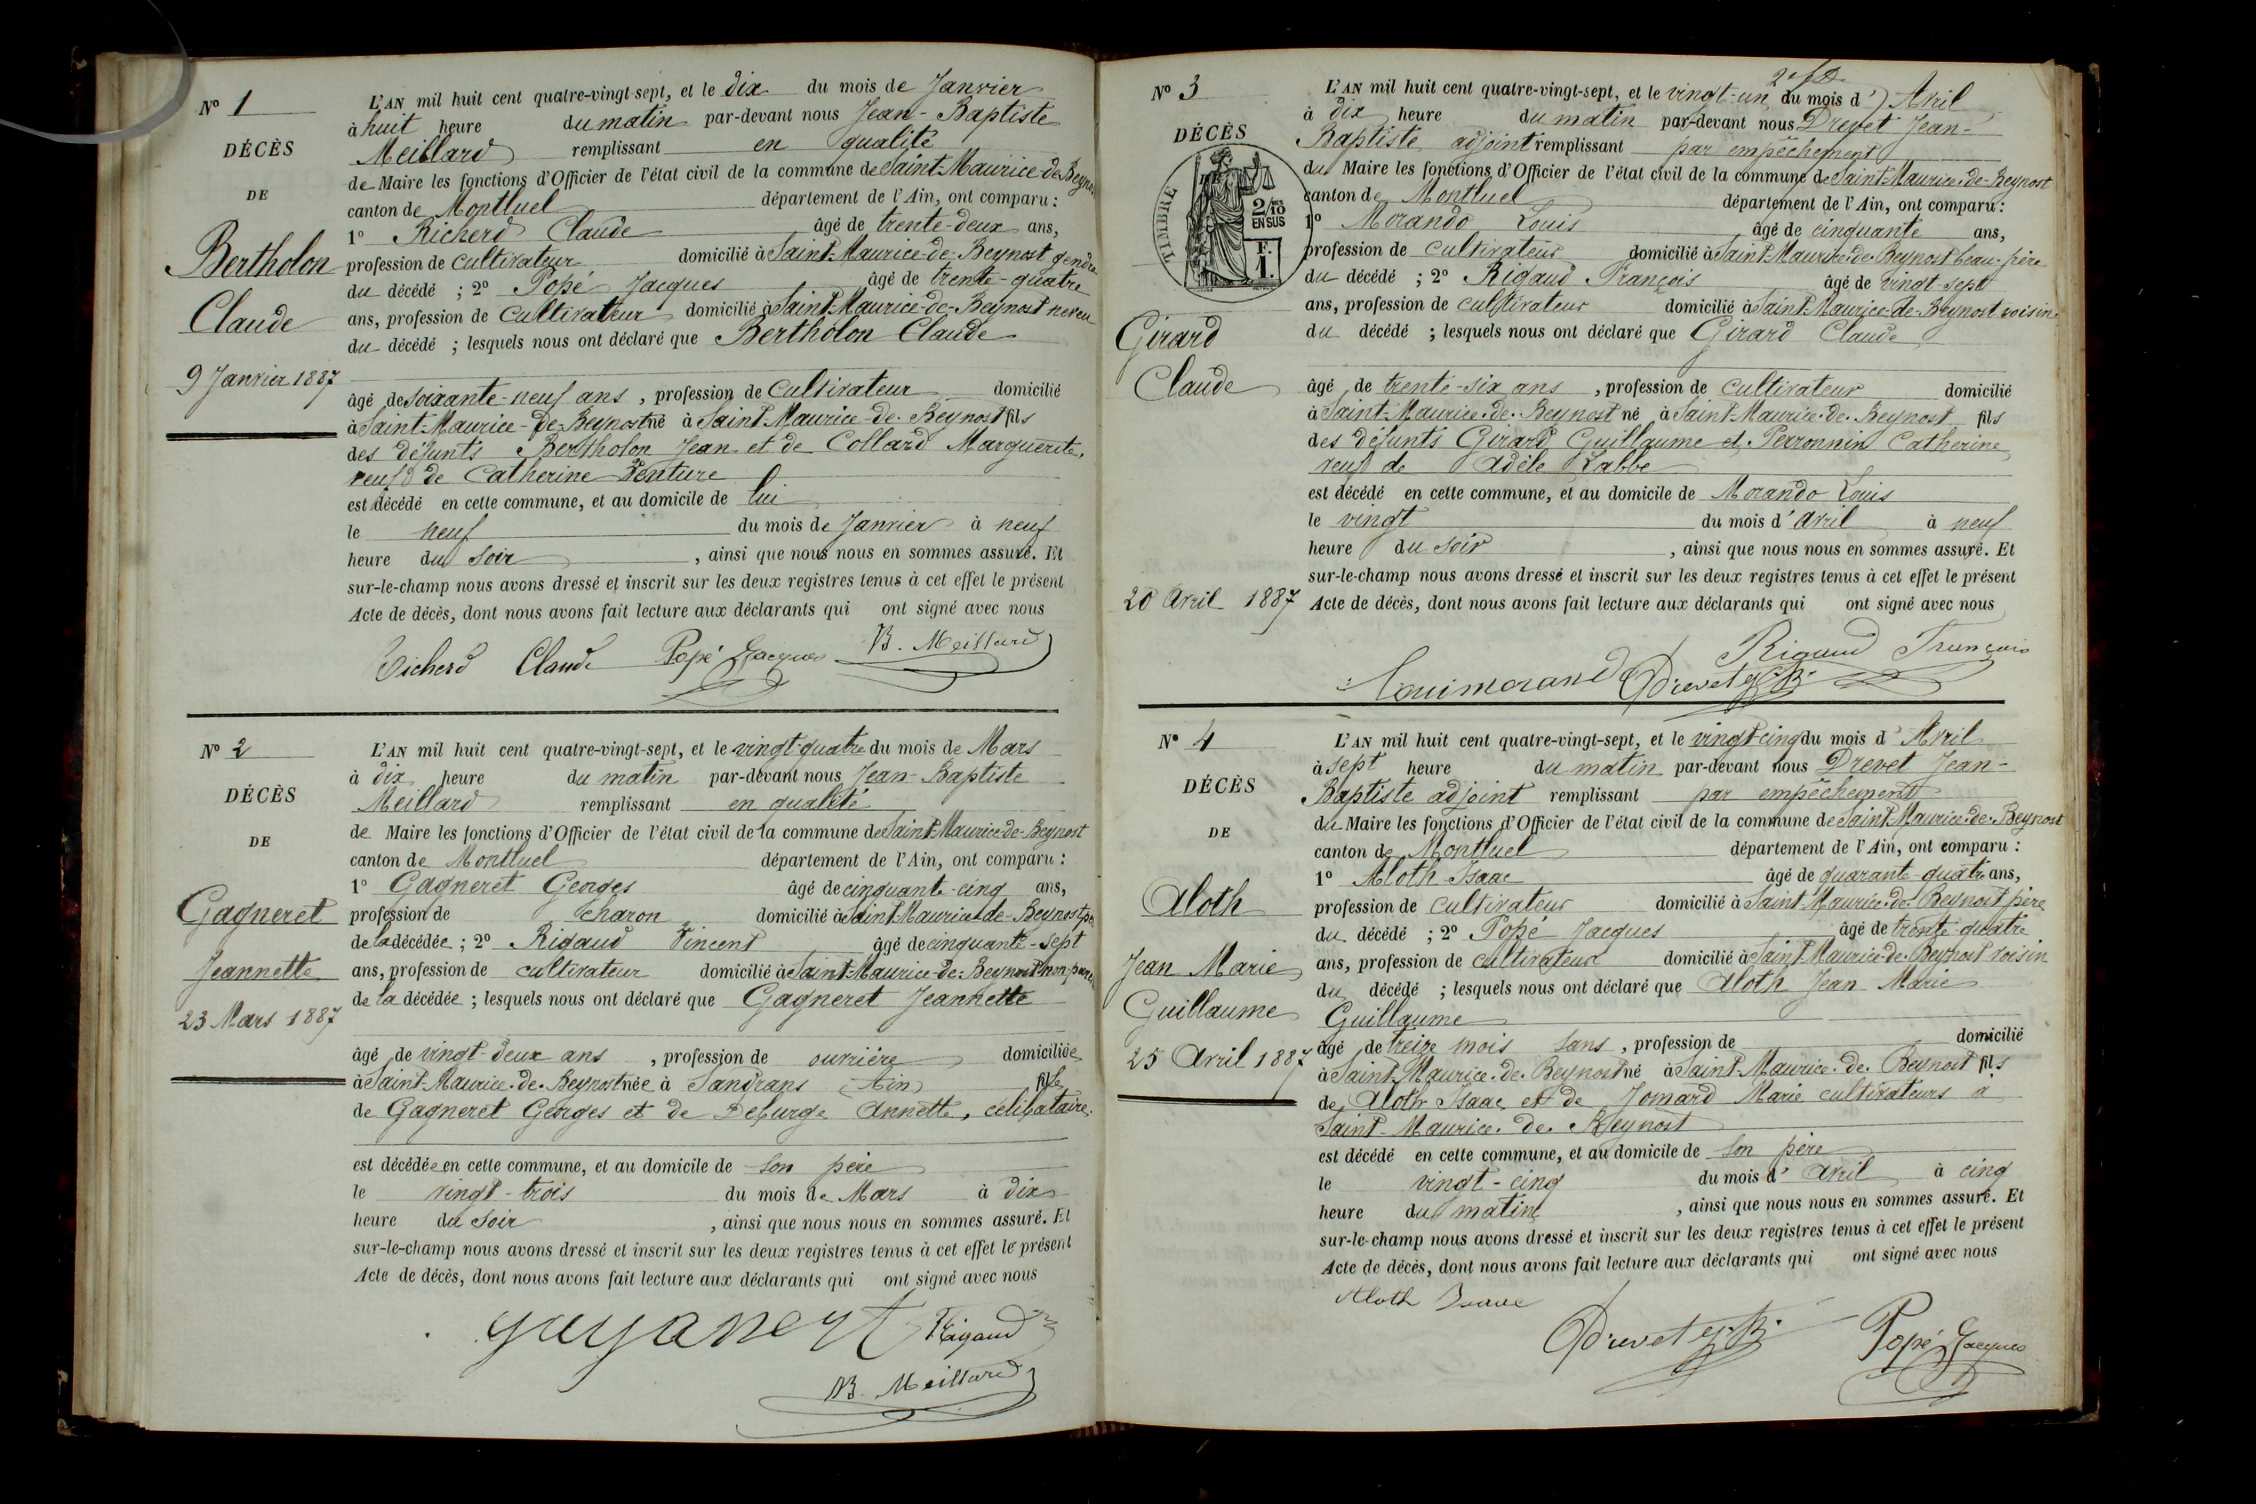 N° 1
DÉCÈS
DE
Bertholon
Claude
9 Janvier 1887
L'AN mil huit cent quatre-vingt-sept, et le dix du mois de Janvier
à huit heure du matin par-devant nous Jean-Baptiste
Meillard remplissant en qualité
de Maire les fonctions d'Officier de l'état civil de la commune de Saint-Maurice-de-Beynost
canton de Montluel département de l'Ain, ont comparu :
1° Richerd Claude âgé de trente-deux ans,
profession de cultivateur domicilié à Saint-Maurice-de-Beynost gendre
du décédé ; 2° Popé Jacques âgé de trente-quatre
ans, profession de cultivateur domicilié à Saint-Maurice-de-Beynost neveu
du décédé ; lesquels nous ont déclaré que Bertholon Claude
âgé de soixante-neuf ans, profession de cultivateur domicilié
à Saint-Maurice-de-Beynost né à Saint-Maurice-de-Beynost fils
des défunts Bertholon Jean et de Collard Marguerite,
veuf de Catherine Venture
est décédé en cette commune, et au domicile de lui
le neuf du mois de Janvier à neuf
heure du soir, ainsi que nous nous en sommes assuré. Et
sur-le-champ nous avons dressé et inscrit sur les deux registres tenus à cet effet le présent
Acte de décès, dont nous avons fait lecture aux déclarants qui ont signé avec nous
Richerd Claude Popé Jacques B. Meillard
N° 2
DÉCÈS
DE
Gagneret
Jeannette
23 Mars 1887
L'AN mil huit cent quatre-vingt-sept, et le vingt-quatre du mois de Mars
à dix heure du matin par-devant nous Jean-Baptiste
Meillard remplissant en qualité
de Maire les fonctions d'Officier de l'état civil de la commune de Saint-Maurice-de-Beynost
canton de Montluel département de l'Ain, ont comparu :
1° Gagneret Georges âgé de cinquante-cinq ans,
profession de charon domicilié à Saint-Maurice-de-Beynost père
de la décédée ; 2° Rigaud Vincent âgé de cinquante-sept
ans, profession de cultivateur domicilié à Saint-Maurice-de-Beynost non parent
de la décédée ; lesquels nous ont déclaré que Gagneret Jeannette
âgé de vingt-deux ans, profession de ouvrière domiciliée
à Saint-Maurice-de-Beynost née à Sandrans (Ain) fille
de Gagneret Georges et de Deburge Annette, célibataire.
est décédée en cette commune, et au domicile de son père
le vingt-trois du mois de Mars à dix
heure du soir, ainsi que nous nous en sommes assuré. Et
sur-le-champ nous avons dressé et inscrit sur les deux registres tenus à cet effet le présent
Acte de décès, dont nous avons fait lecture aux déclarants qui ont signé avec nous
Rigaud
B. Meillard
N° 3
DÉCÈS
TIMBRE
2/10 EN SUS
F. 1.
Girard
Claude
20 Avril 1887
L'AN mil huit cent quatre-vingt-sept, et le vingt-un du mois d'Avril
à dix heure du matin par-devant nous Drevet Jean-
Baptiste adjoint remplissant par empêchement
du Maire les fonctions d'Officier de l'état civil de la commune de Saint-Maurice-de-Beynost
canton de Montluel département de l'Ain, ont comparu :
1° Morando Louis âgé de cinquante ans,
profession de cultivateur domicilié à Saint-Maurice-de-Beynost beau-père
du décédé ; 2° Rigaud François âgé de vingt-sept
ans, profession de cultivateur domicilié à Saint-Maurice-de-Beynost voisin
du décédé ; lesquels nous ont déclaré que Girard Claude
âgé de trente-six ans, profession de cultivateur domicilié
à Saint-Maurice-de-Beynost né à Saint-Maurice-de-Beynost fils
des défunts Girard Guillaume et Perronnin Catherine
veuf de Adèle Labbe
est décédé en cette commune, et au domicile de Morando Louis
le vingt du mois d'avril à neuf
heure du soir, ainsi que nous nous en sommes assuré. Et
sur-le-champ nous avons dressé et inscrit sur les deux registres tenus à cet effet le présent
Acte de décès, dont nous avons fait lecture aux déclarants qui ont signé avec nous
Rigaud François
Louimorand Drevet J. B.
N° 4
DÉCÈS
DE
Aloth
Jean Marie
Guillaume
25 Avril 1887
L'AN mil huit cent quatre-vingt-sept, et le vingt-cinq du mois d'Avril
à sept heure du matin par-devant nous Drevet Jean-
Baptiste adjoint remplissant par empêchement
du Maire les fonctions d'Officier de l'état civil de la commune de Saint-Maurice-de-Beynost
canton de Montluel département de l'Ain, ont comparu :
1° Aloth Isaac âgé de quarante-quatre ans,
profession de cultivateur domicilié à Saint-Maurice-de-Beynost père
du décédé ; 2° Popé Jacques âgé de trente-quatre
ans, profession de cultivateur domicilié à Saint-Maurice-de-Beynost voisin
du décédé ; lesquels nous ont déclaré que Aloth Jean Marie
Guillaume
âgé de treize mois sans, profession de domicilié
à Saint-Maurice-de-Beynost né à Saint-Maurice-de-Beynost fils
de Aloth Isaac et de Jomard Marie cultivateurs à
Saint-Maurice-de-Beynost
est décédé en cette commune, et au domicile de son père
le vingt-cinq du mois d'avril à cinq
heure du matin, ainsi que nous nous en sommes assuré. Et
sur-le-champ nous avons dressé et inscrit sur les deux registres tenus à cet effet le présent
Acte de décès, dont nous avons fait lecture aux déclarants qui ont signé avec nous
Aloth Isaac
Drevet J. B. Popé Jacques